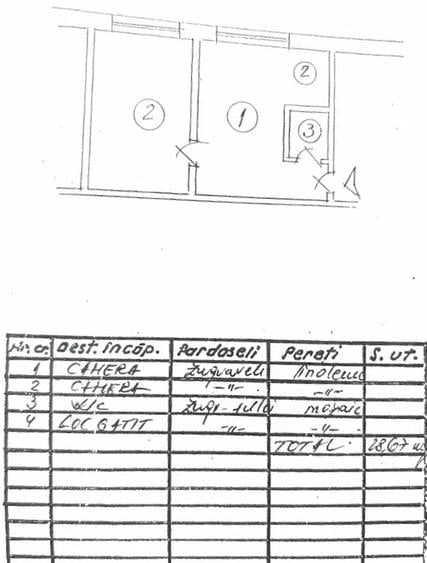 2
1
2
3
Nr. cr. Dest. încăp. Pardoseli Pereti S. ut.
1 CAMERA zugraveli linoleu
2 CAMERA -"- -"-
3 W/C mozaic
4 LOC GATIT -"- -"-
TOTAL 28,67